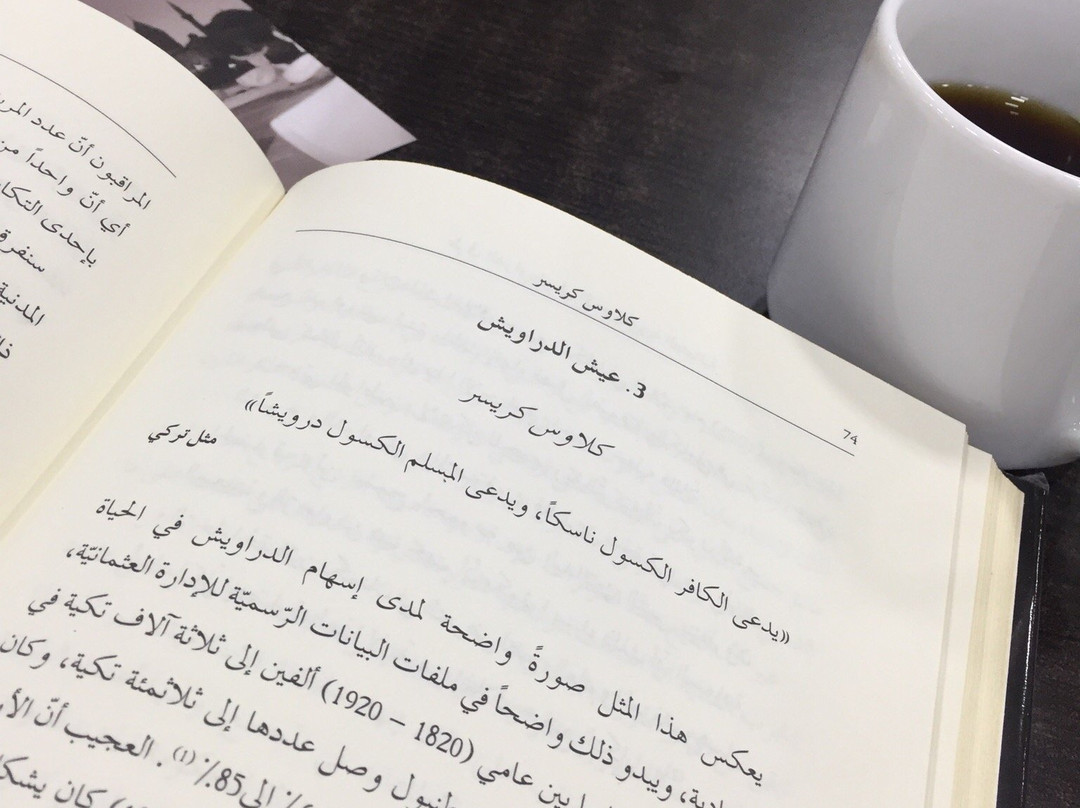 كلاوس كريسر
74
3. عيش الدراويش
كلاوس كريسر
«يدعى الكافر الكسول ناسكاً، ويدعى المسلم الكسول درويشاً»
مثل تركي
يعكس هذا المثل صورةً واضحة لمدى إسهام الدراويش في الحياة
ويبدو ذلك واضحاً في ملفات البيانات الرّسميّة للإدارة العثمانيّة،
بين عامي (1820 – 1920) ألفين إلى ثلاثة آلاف تكية في
وصل عددها إلى ثلاثمئة تكية، وكان
إلى 85٪ (1). العجيب أنّ
كان
المراقبون أنّ عدد
أي أنّ واحداً من
بإحدى
المدنية